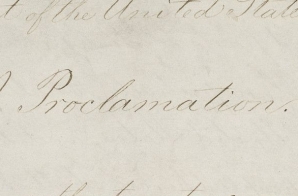 of the United States
Proclamation.